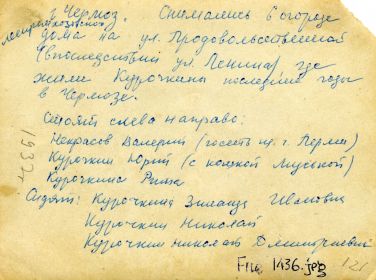 г. Чермоз. Снимались в огороде
дома на ул. Продовольственной
(впоследствии ул. Ленина) где
жили Курочкины последние годы
в Чермозе.
Стоят слева направо:
Некрасов Валерий (гость из г. Перми)
Курочкин Юрий (с кошкой Муськой)
Курочкина Рима
Сидят: Курочкина Зинаида Ивановна
Курочкин Николай
Курочкин Николай Дмитриевич
1937г.
File 1436.jpg 121